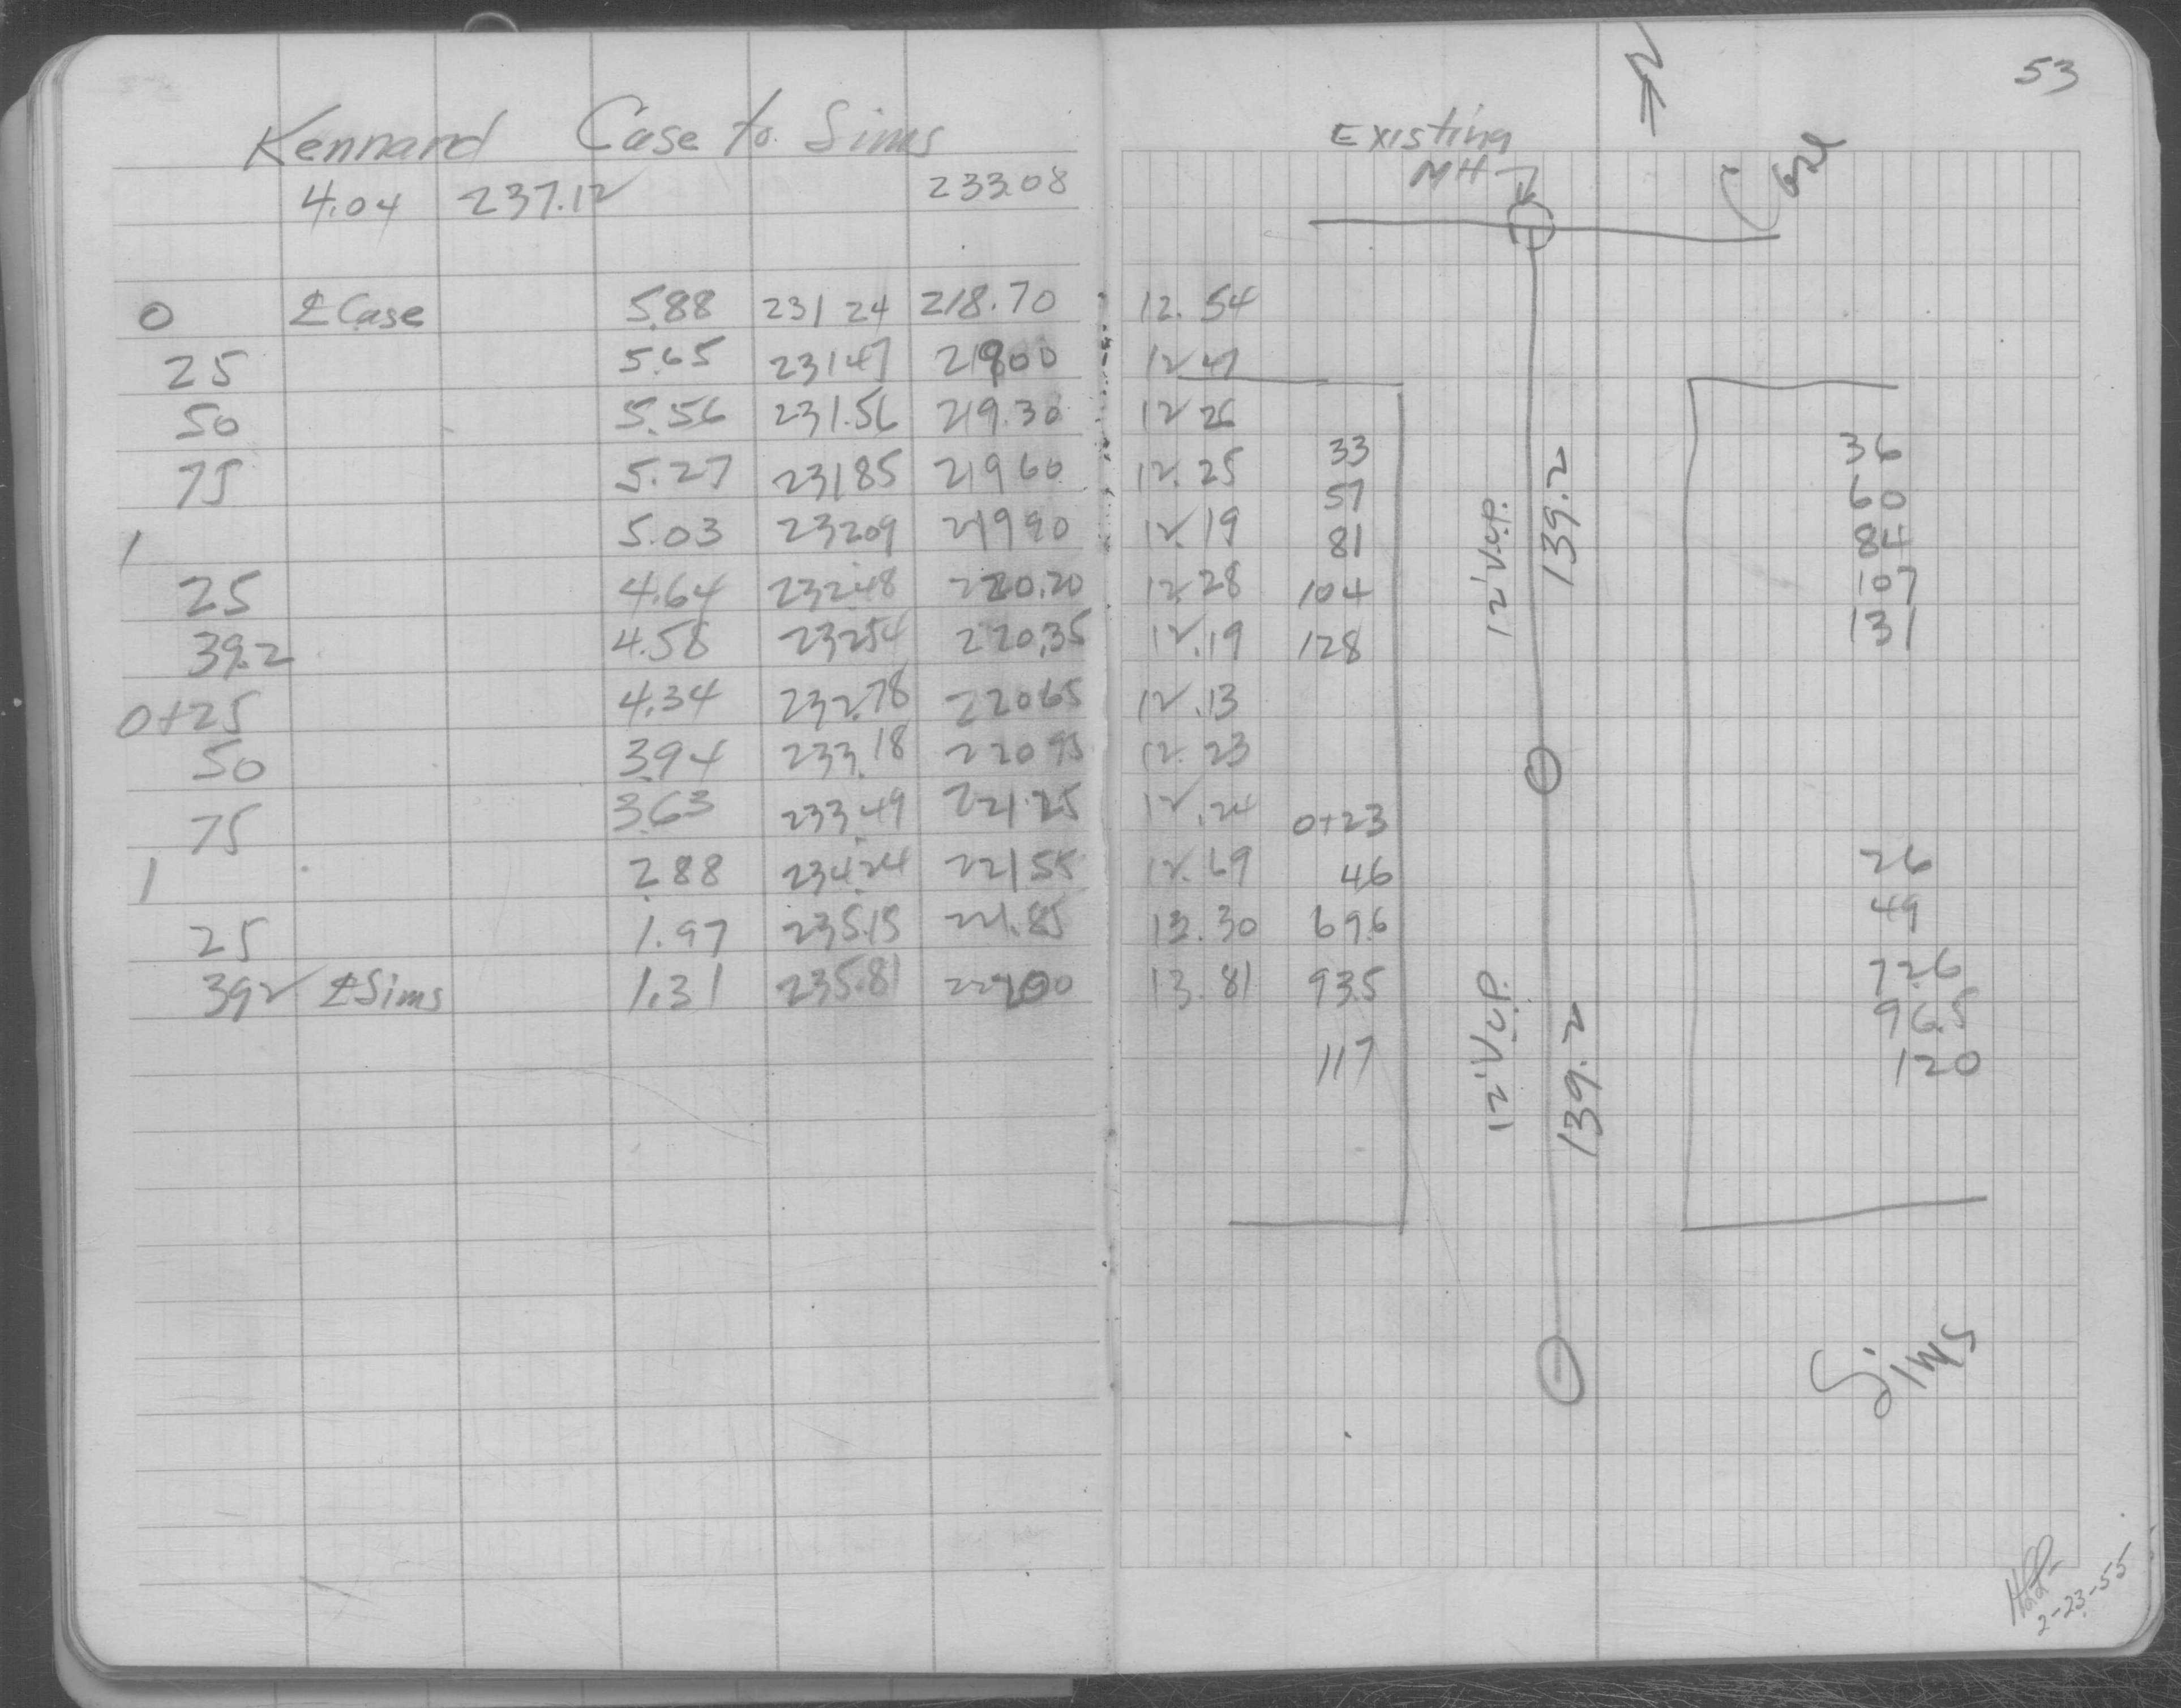 Kennard Case to Sims
4.04 237.12 233.08
0 ℄ Case 5.88 231 24 218.70 12.54
25 5.65 231 47 219 00 12 47
50 5.56 231.56 219.30 12 26
75 5.27 231 85 219 60 12.25
1 5.03 232 09 219 90 12.19
25 4.64 232 48 220.20 12.28
39.2 4.58 232 54 220.35 12.19
0+25 4.34 232.78 220 65 12.13
50 3.94 233.18 220 95 12.23
75 3.63 233.49 221.25 12.24
1 2.88 234.24 221 55 12.69
25 1.97 235.15 221.85 13.30
39 2 ℄ Sims 1.31 235.81 222 00 13.81
53
N
Existing
MH
Case
33
57
81
104
128
12" V.P.
139.2
36
60
84
107
131
0+23
46
69.6
93.5
117
12" V.P.
139.2
26
49
72.6
96.5
120
Sims
2-23-55